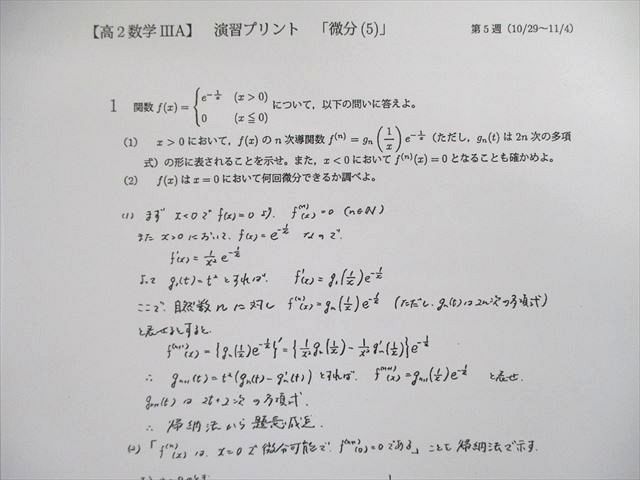 【高2数学ⅢA】 演習プリント 「微分(5)」 第5週(10/29～11/4)
1 関数 f(x) = { e^{-1/x} (x > 0) 0 (x ≦ 0) について，以下の問いに答えよ。
(1) x > 0 において，f(x) の n 次導関数 f^{(n)} = g_n(1/x) e^{-1/x} (ただし，g_n(t) は 2n 次の多項
式) の形に表されることを示せ。また，x < 0 において f^{(n)}(x) = 0 となることも確かめよ。
(2) f(x) は x = 0 において何回微分できるか調べよ。
(1) まず x<0 で f(x)=0 より. f^{(n)}(x)=0 (n∈N)
また x>0 において, f(x)=e^{-1/x} なので.
f'(x) = 1/x² e^{-1/x}
よって g₁(t)=t² とすれば. f'(x) = g₁(1/x)e^{-1/x}
ここで. 自然数 n に対し f^{(n)}(x) = g_n(1/x)e^{-1/x} (ただし. g_n(t) は 2n 次の多項式)
と表せるとすると.
f^{(n+1)}(x) = {g_n(1/x)e^{-1/x}}' = {1/x² g_n(1/x) - 1/x² g_n'(1/x)}e^{-1/x}
∴ g_{n+1}(t) = t²(g_n(t) - g_n'(t)) とすれば. f^{(n+1)}(x) = g_{n+1}(1/x)e^{-1/x} と表せ.
g_{n+1}(t) は 2n+2 次の多項式.
∴ 帰納法から題意成立.
(2) 「f^{(n)}(x) は. x=0 で微分可能で. f^{(n+1)}(0)=0 である」ことを帰納法で示す.